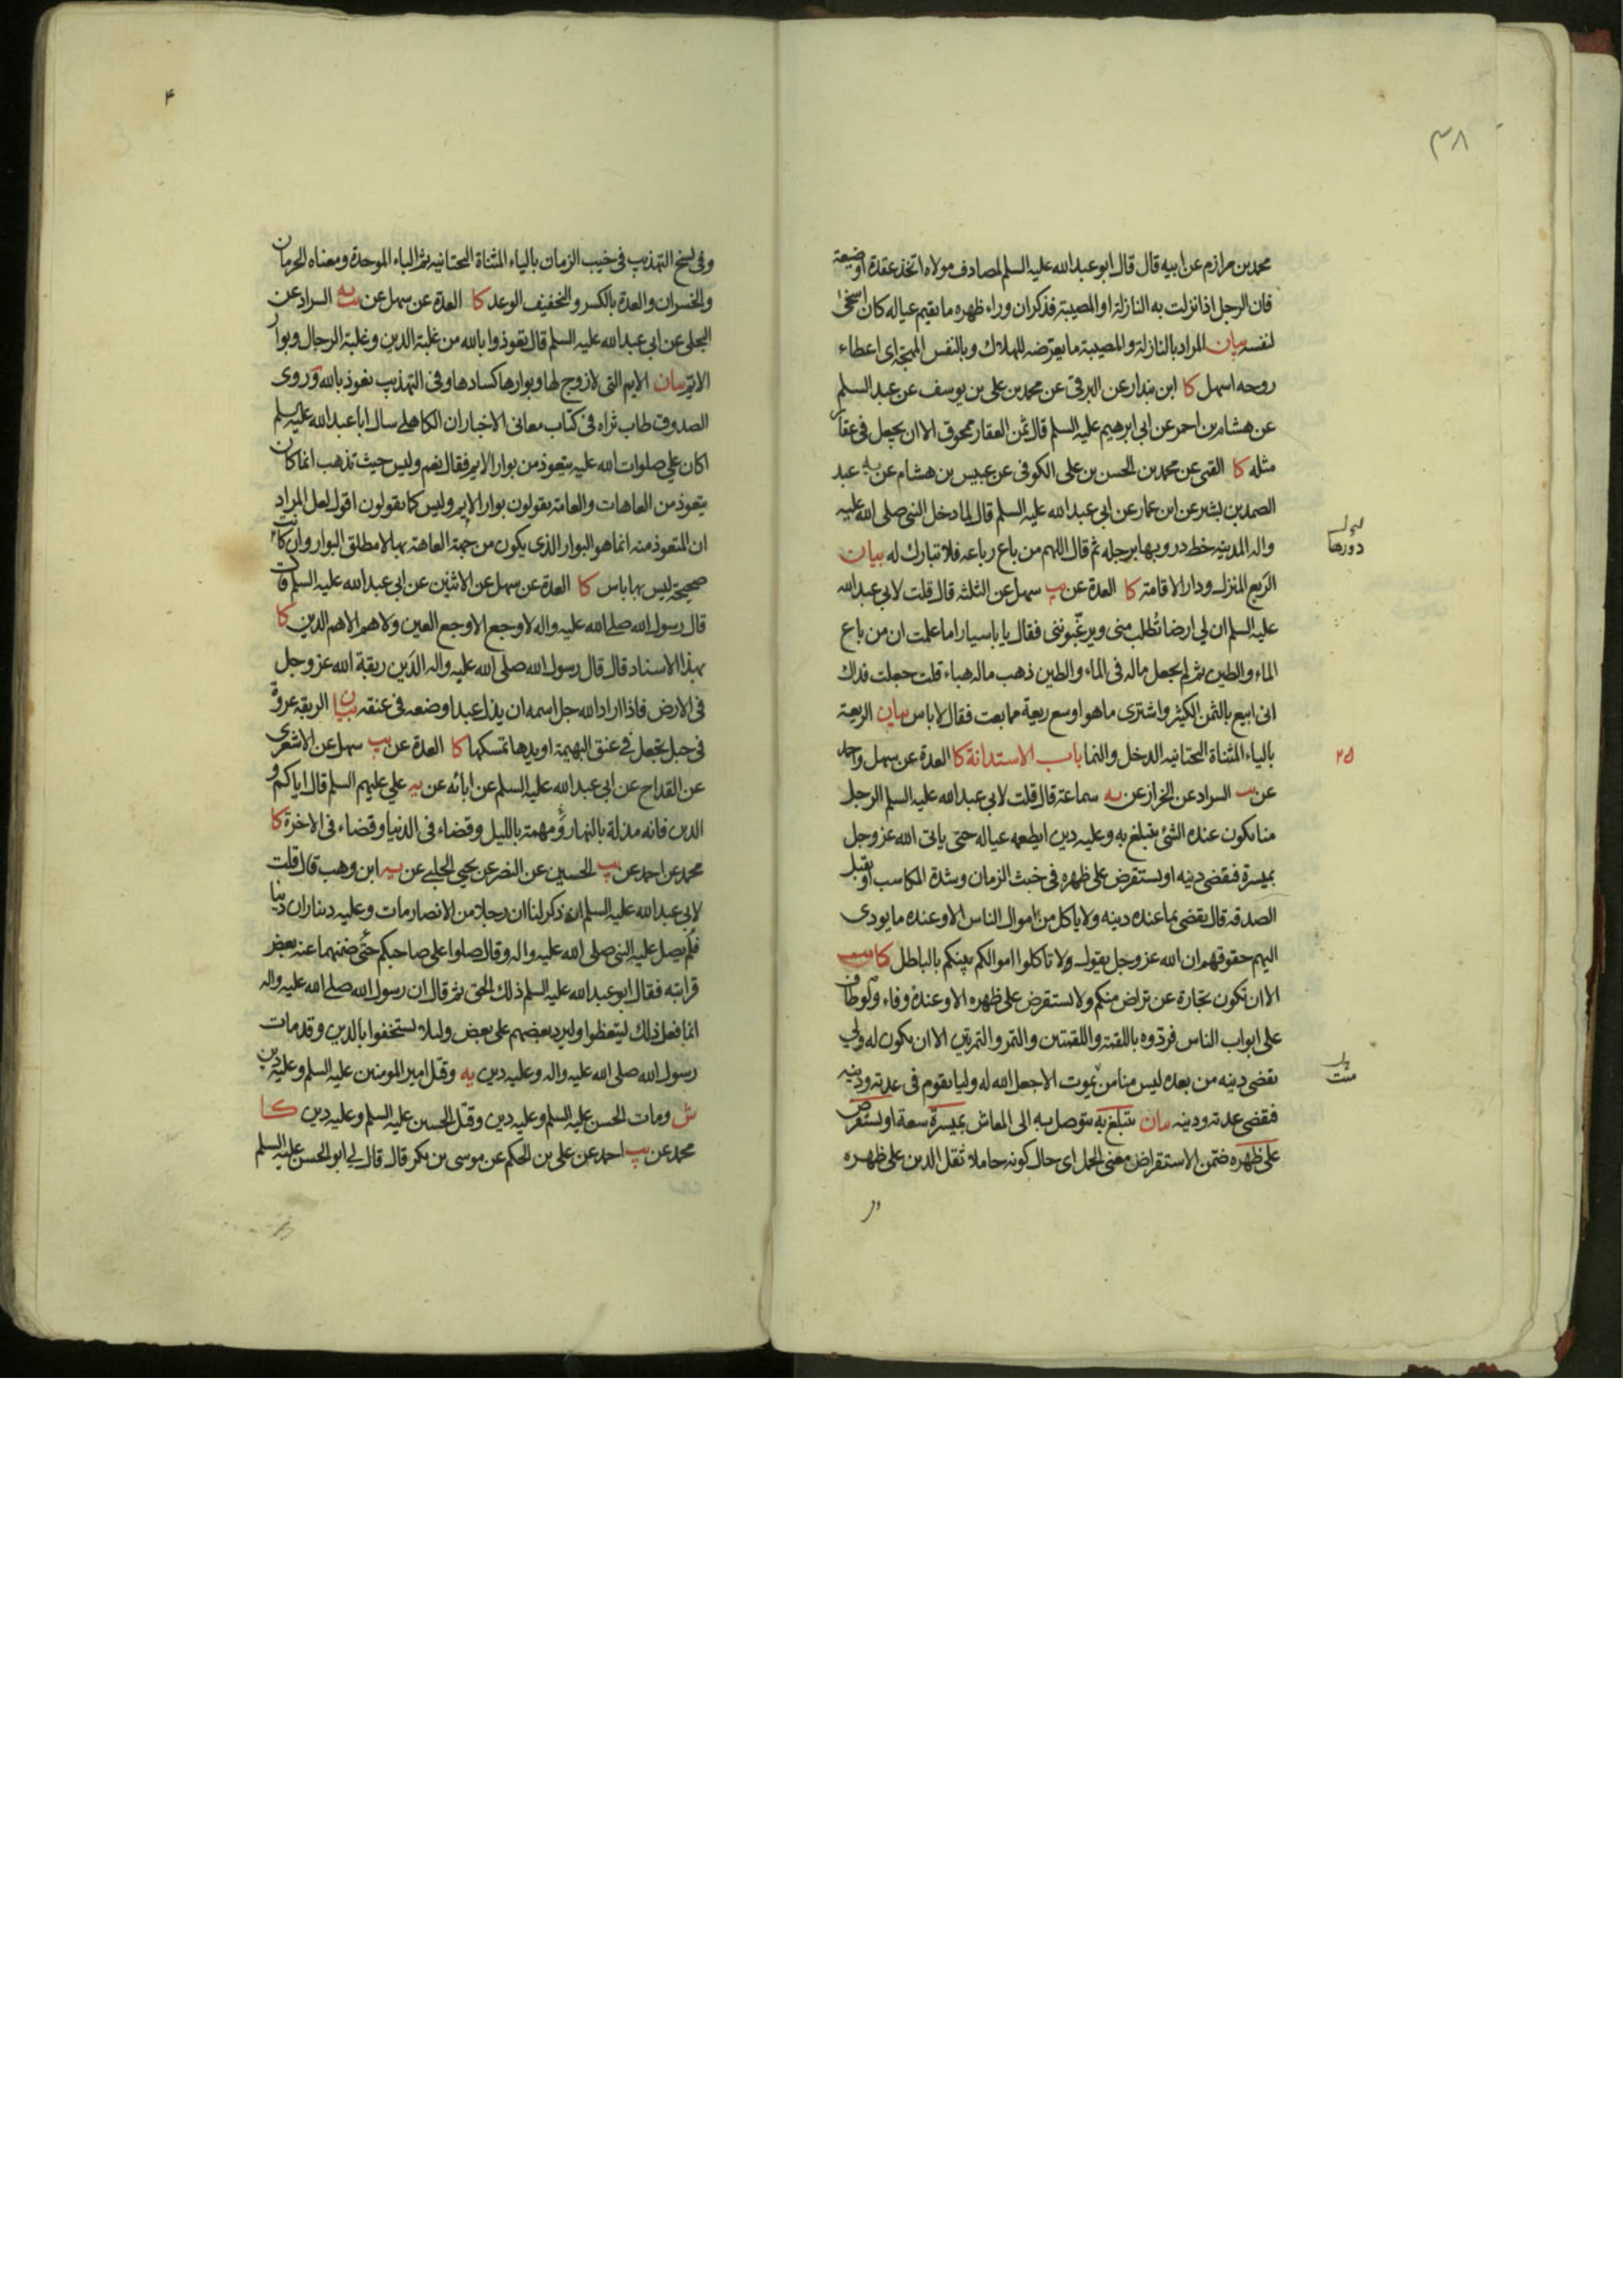 ٣٨
محمد بن مرازم عن ابيه قال قال ابو عبد الله عليه السلم لمصادف مولاه اتخذ عقدة او ضيعة
فان الرجل اذا نزلت به النازلة او المصيبة فذكر ان وراء ظهره ما يقيم عياله كان اسخى
لنفسه بيان المراد بالنازلة والمصيبة ما يعرّضه للهلاك وبالنفس المهجة اى اعطاء
روحه اسهل كا ابن بندار عن البرقى عن محمد بن على بن يوسف عن عبد السلم
عن هشام بن احمر عن ابى ابرهيم عليه السلم قال ثمن العقار ممحوق الا ان يجعل فى عقار
مثله كا القمى عن محمد بن الحسن بن على الكوفى عن عبيس بن هشام عن يه عبد
الصمد بن بشير عن ابن عمار عن ابى عبد الله عليه السلم قال لما دخل النبى صلى الله عليه
واله المدينه خط دروبها برجله ثم قال اللهم من باع رباعه فلا تبارك له بيان
دورها
الرَبع المنزل ودار الاقامة كا العدة عن يب سهل عن الثلثه قال قلت لابى عبد الله
عليه السلم ان لى ارضا تُطلب منى ويرغّبوننى فقال يا باسيار اما علمت ان من باع
الماء والطين ثم لم يجعل ماله فى الماء والطين ذهب ماله هباء قلت جعلت فداك
انى ابيع بالثمن الكثير واشترى ما هو اوسع ريعة مما بعت فقال لا باس بيان الريعة
بالياء المثناة التحتانيه الدخل والنما باب الاستدانة كا العدة عن سهل واحمد
٢٥
عن يب السراد عن الخراز عن يه سماعة قال قلت لابى عبد الله عليه السلم الرجل
منا يكون عنده الشئ يتبلغ به وعليه دين ايطعمه عياله حتى ياتى الله عز وجل
بميسرة فيقضى دينه او يستقرض على ظهره فى خبث الزمان وشدة المكاسب او يقبل
الصدقه قال يقضى بما عنده دينه ولا ياكل من اموال الناس الا وعنده ما يودى
اليهم حقوقهم ان الله عز وجل يقول ولا تاكلوا اموالكم بينكم بالباطل كا يب
الا ان تكون تجارة عن تراض منكم ولا يستقرض على ظهره الا وعنده وفاء ولو طاف
على ابواب الناس فردّوه باللقمة واللقمتين والتمر والتمرتين الا ان يكون له ولى
يقضى دينه من بعده ليس منا من يموت الا جعل الله له وليا يقوم فى عدته ودينه
فيقضى عدته ودينه بيان يتبلغ به يتوصل به الى المعاش بميسرة سعة او يستقرض
على ظهره ضمّن الاستقراض معنى الحمل اى حال كونه حاملا ثقل الدين على ظهره
۴
وفى نسخ التهذيب فى خيب الزمان بالياء المثناة التحتانيه ثم الباء الموحدة ومعناه الحرمان
والخسران والعدة بالكسر والتخفيف الوعد كا العدة عن سهل عن يب يه السراد عن
البجلى عن ابى عبد الله عليه السلم قال تعوذوا بالله من غلبة الدين وغلبة الرجال وبوار
الايّم بيان الايم التى لا زوج لها وبوارها كسادها وفى التهذيب نعوذ بالله وروى
الصدوق طاب ثراه فى كتاب معانى الاخبار ان الكاهلى سال ابا عبد الله عليه السلم
اكان على صلوات الله عليه يتعوذ من بوار الايم فقال نعم وليس حيث تذهب انما كان
يتعوذ من العاهات والعامة يقولون بوار الايم وليس كما يقولون اقول لعل المراد
ان المتعوذ منه انما هو البوار الذى يكون من جهة العاهة بها لا مطلق البوار وان كانت
صحيحة ليس بها باس كا العدة عن سهل عن الاثنين عن ابى عبد الله عليه السلم قال
قال رسول الله صلى الله عليه واله لا وجع الا وجع العين ولا هم الا هم الدين كا
بهذا الاسناد قال قال رسول الله صلى الله عليه واله الدَين ربقة الله عز وجل
فى الارض فاذا اراد الله جل اسمه ان يذل عبدا وضعه فى عنقه بيان الربقة عروة
فى حبل تجعل فى عنق البهيمة او يدها تمسكها كا العدة عن يب سهل عن الاشعرى
عن القداح عن ابى عبد الله عليه السلم عن ابائه عن يه على عليهم السلم قال اياكم و
الدين فانه مذلة بالنهار ومهمة بالليل وقضاء فى الدنيا وقضاء فى الاخرة كا
محمد عن احمد عن يب الحسين عن النضر عن يحيى الحلبى عن يه ابن وهب قال قلت
لابى عبد الله عليه السلم انه ذكر لنا ان رجلا من الانصار مات وعليه ديناران دينا
فلم يصل عليه النبى صلى الله عليه واله وقال صلوا على صاحبكم حتى ضمنهما عنه بعض
قرابته فقال ابو عبد الله عليه السلم ذلك الحق ثم قال ان رسول الله صلى الله عليه واله
انما فعل ذلك ليتعظوا وليرد بعضهم على بعض ولئلا يستخفوا بالدين وقد مات
رسول الله صلى الله عليه واله وعليه دين يه وقتل امير المومنين عليه السلم وعليه دين
ش ومات الحسن عليه السلم وعليه دين وقتل الحسين عليه السلم وعليه دين كا
محمد عن يب احمد عن على بن الحكم عن موسى بن بكر قال قال لى ابو الحسن عليه السلم